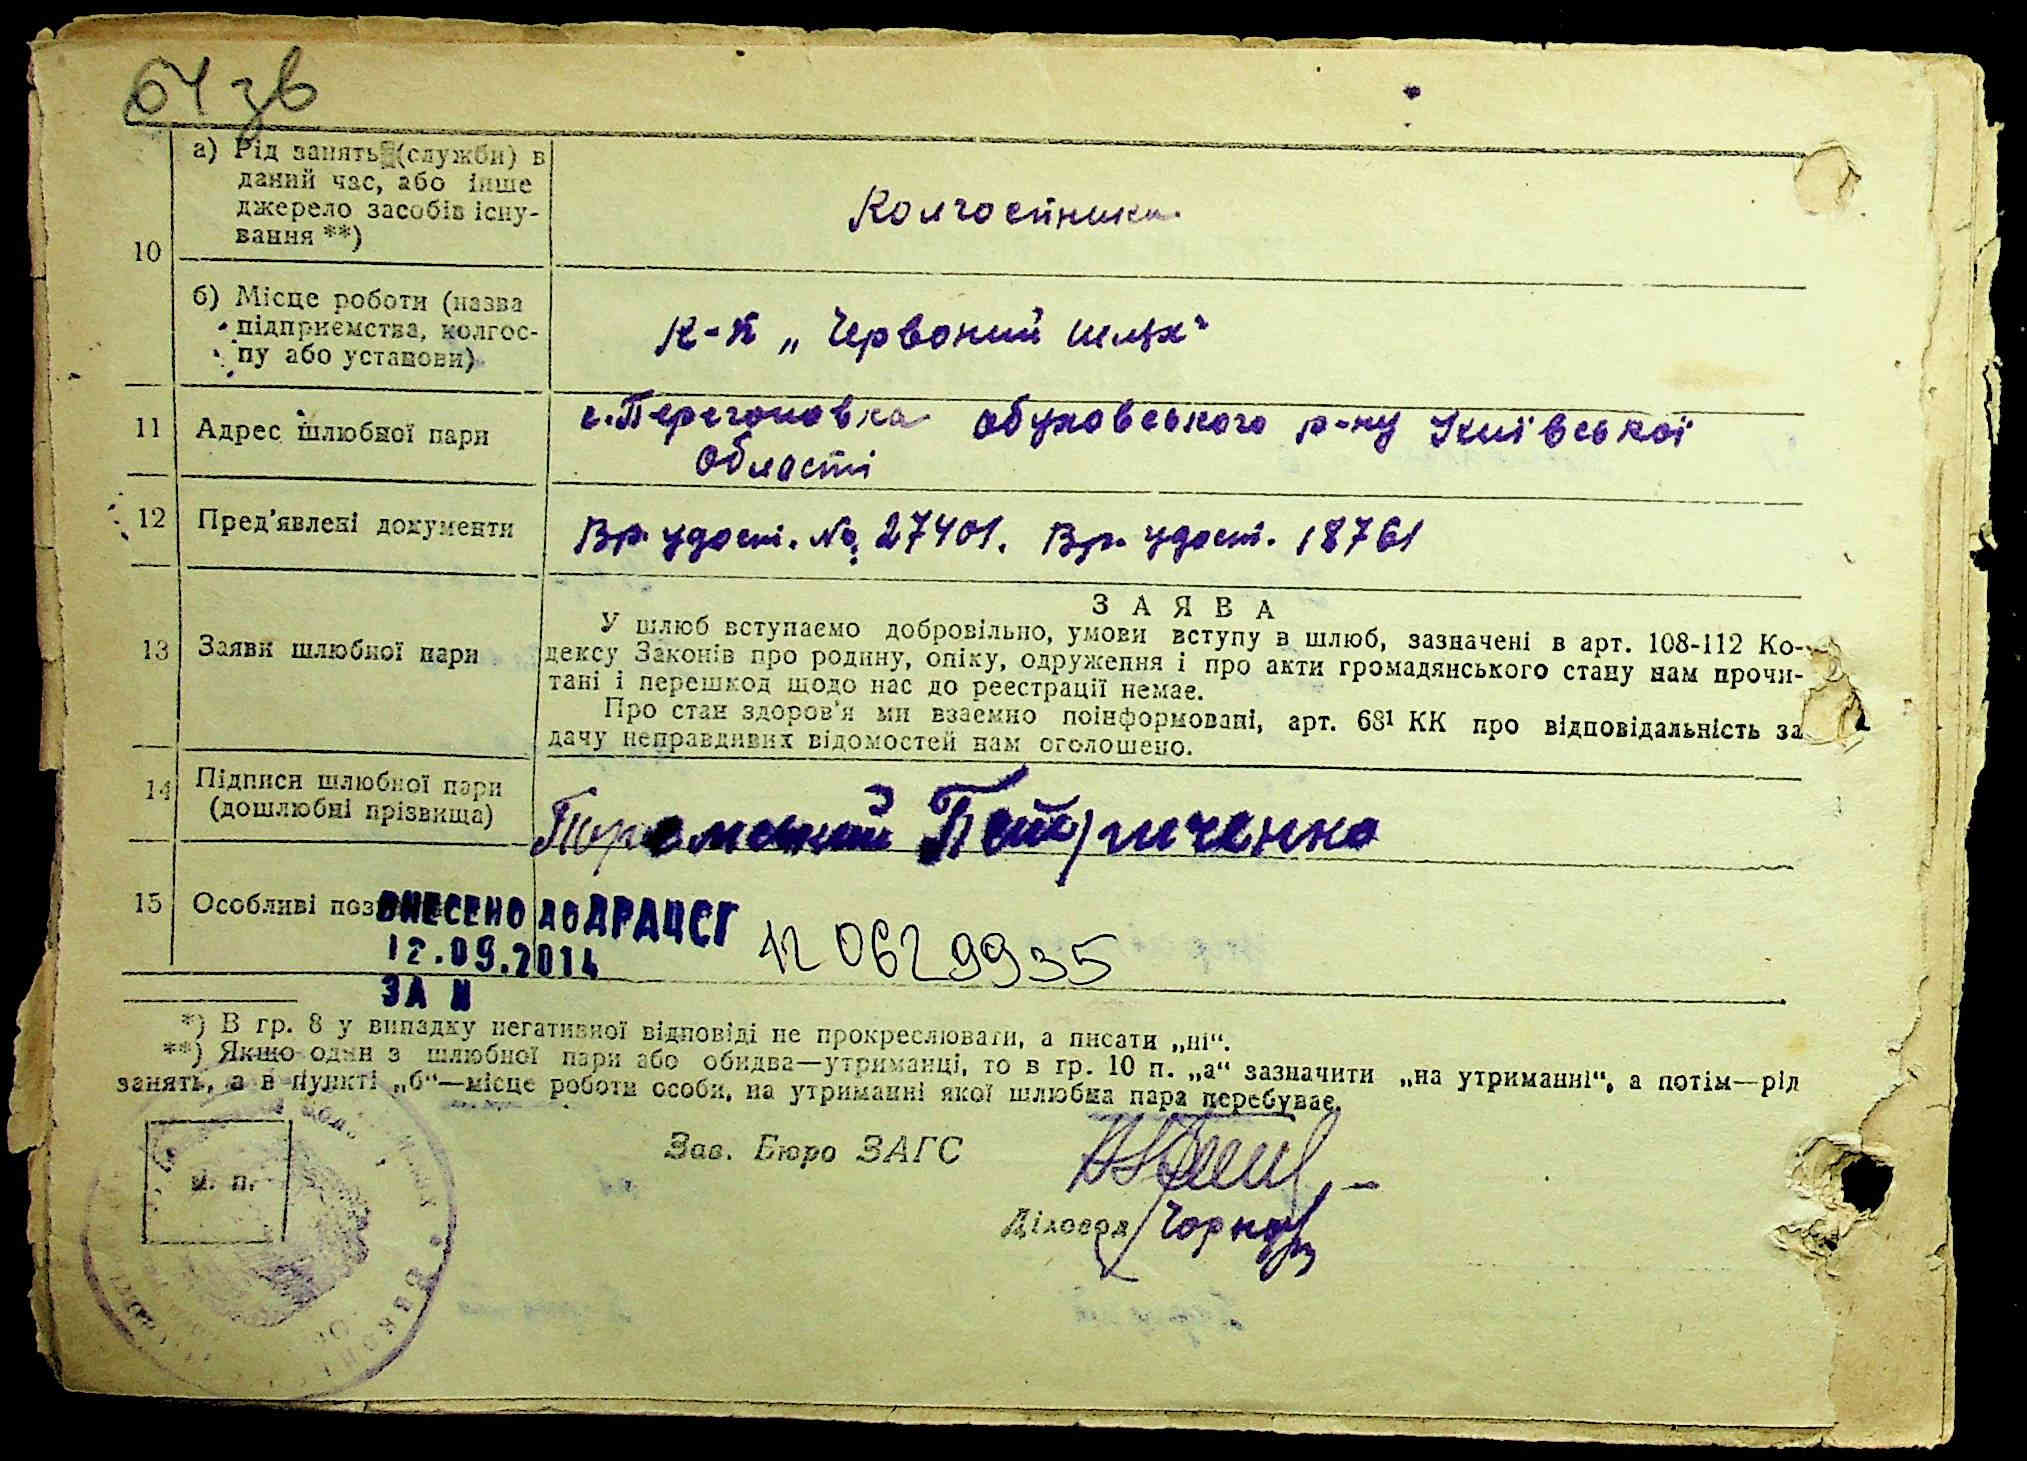 64 зв
10
а) Рід занять (служби) в
даний час, або інше
джерело засобів існу-
вання **)
Колгоспники
б) Місце роботи (назва
підприємства, колгос-
пу або установи)
К-п „Червоний шлях"
11
Адрес шлюбної пари
с. Перегоновка обуховського р-ну Київської
області
12
Пред'явлені документи
Вр. удост. № 27401. Вр. удост. 18761
13
Заяви шлюбної пари
ЗАЯВА
У шлюб вступаємо добровільно, умови вступу в шлюб, зазначені в арт. 108-112 Ко-
дексу Законів про родину, опіку, одруження і про акти громадянського стану нам прочи-
тані і перешкод щодо нас до реєстрації немає.
Про стан здоров'я ми взаємно поінформовані, арт. 68¹ КК про відповідальність за
дачу неправдивих відомостей нам оголошено.
14
Підписи шлюбної пари
(дошлюбні прізвища)
Петриченко
15
Особливі поз
ВНЕСЕНО ДО ДРАЦСГ
12.09.2014
ЗА №
12 0629935
*) В гр. 8 у випадку негативної відповіді не прокреслювати, а писати „ні“.
**) Якщо один з шлюбної пари або обидва—утриманці, то в гр. 10 п. „а“ зазначити „на утриманні“, а потім—рід
занять, а в пункті „б“—місце роботи особи, на утриманні якої шлюбна пара перебуває.
м. п.
Зав. Бюро ЗАГС
Діловод